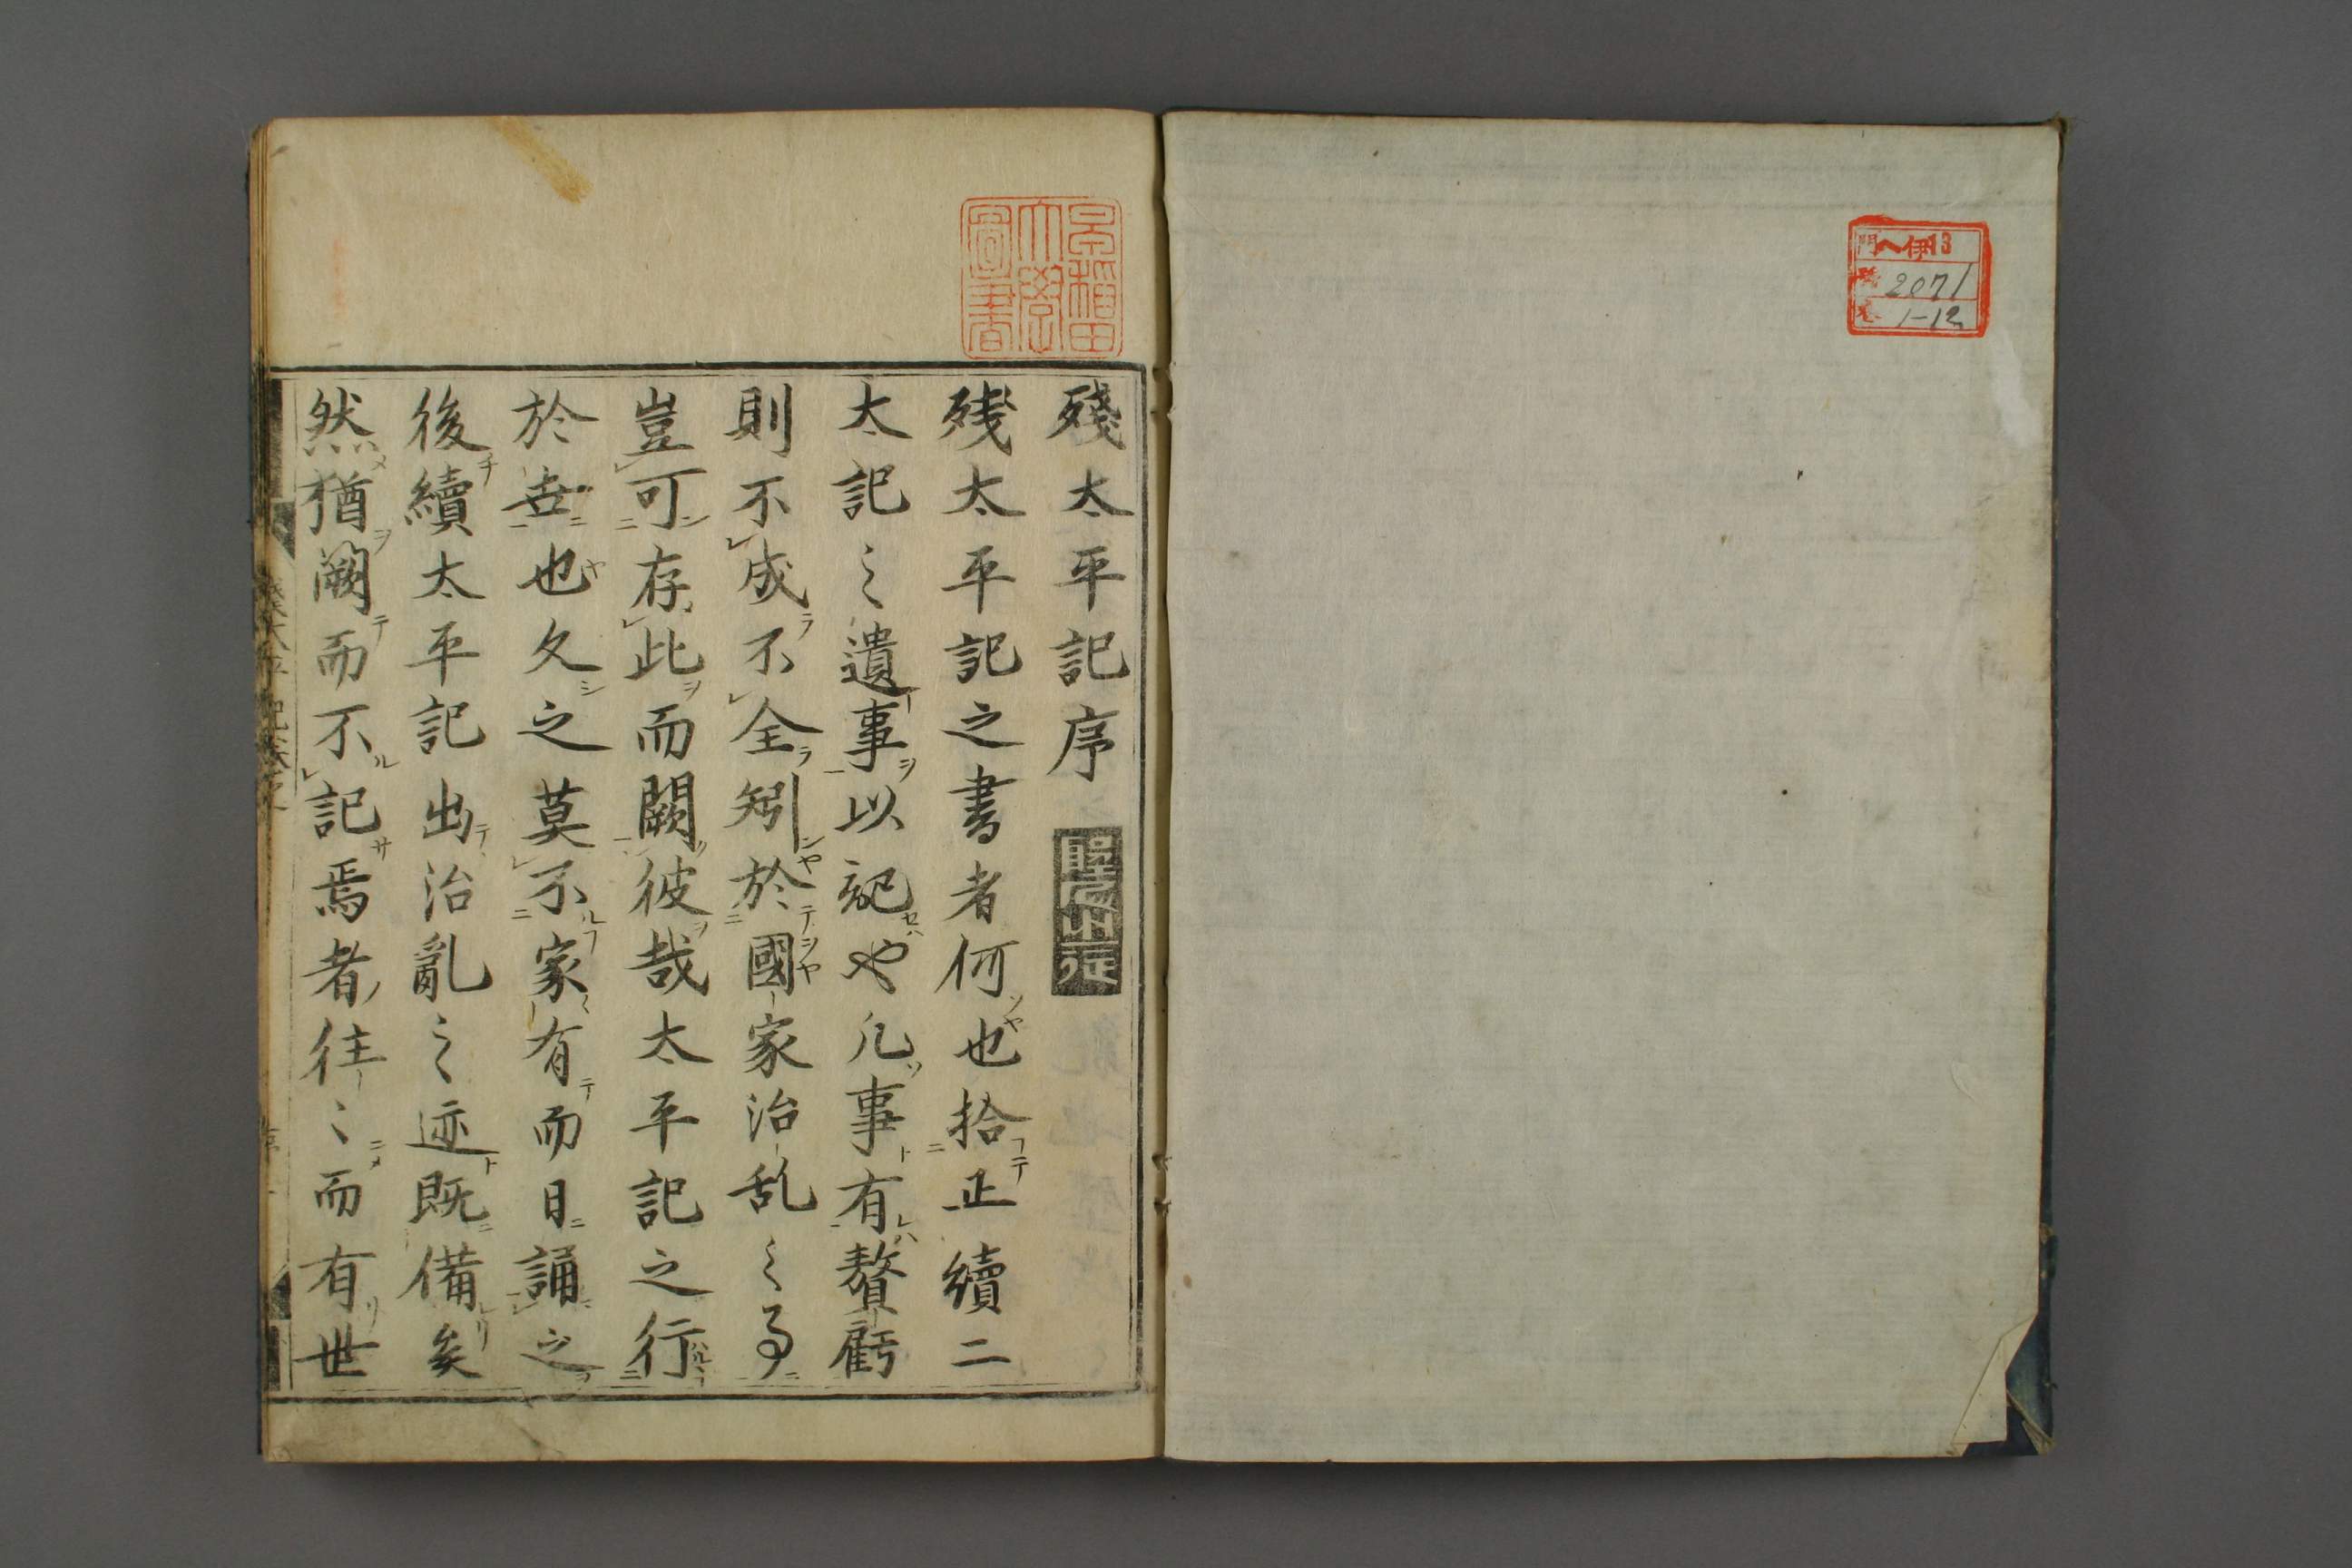 門 ヘ伊13
號 2071
卷 1-12
早稲田
大學
圖書
殘太平記序
残太平記之書者何也拾正續二
太記之遺事以記也凡事有贅虧
則不成不全矧於國家治乱之事
豈可存此而闕彼哉太平記之行
於世也久之莫不家有而日誦之
後續太平記出治亂之迹既備矣
然猶闕而不記焉者往〻而有世